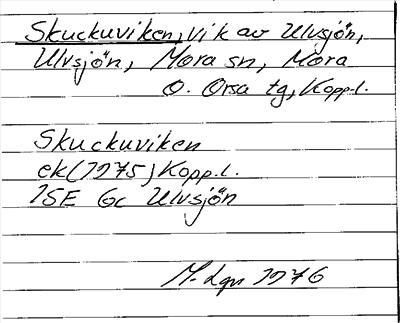 Skuckuviken, vik av Ulvsjön,
Ulvsjön, Mora sn, Mora
o. Orsa tg, Kopp.l.
Skuckuviken
ek (1975) Kopp.l.
15E Gc Ulvsjön
M-lgn 1976